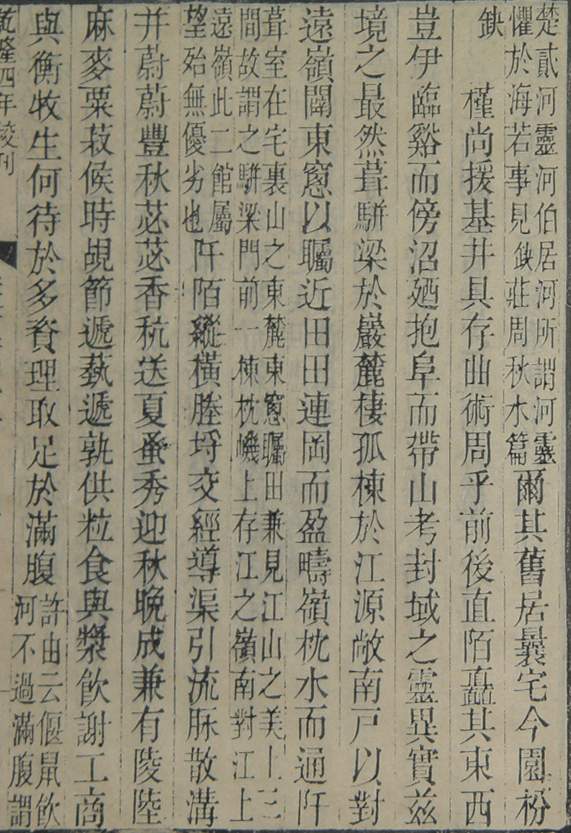 楚貳河靈河伯居河所謂河靈
懼於海若事見鈌莊周秋水篇
爾其舊居曩宅今園枌
鈌
槿尚援基井具存曲術周乎前後直陌矗其東西
豈伊臨谿而傍沼迺抱阜而帶山考封域之靈異實茲
境之最然葺駢梁於巖麓棲孤棟於江源敞南戶以對
遠嶺闢東窻以矚近田田連岡而盈疇嶺枕水而通阡
葺室在宅裏山之東麓東窻矚田兼見江山之美上三
間故謂之駢梁門前一棟枕磯上存江之嶺南對江上
遠嶺此二館屬
望始無優劣也
阡陌縱橫塍埒交經導渠引流脈散溝
并蔚蔚豐秋苾苾香秔送夏蚤秀迎秋晚成兼有陵陸
麻麥粟菽候時覘節遞藝遞孰供粒食與漿飲謝工商
與衡牧生何待於多資理取足於滿腹
許由云偃鼠飲
河不過滿腹謂
乾隆四年校刊